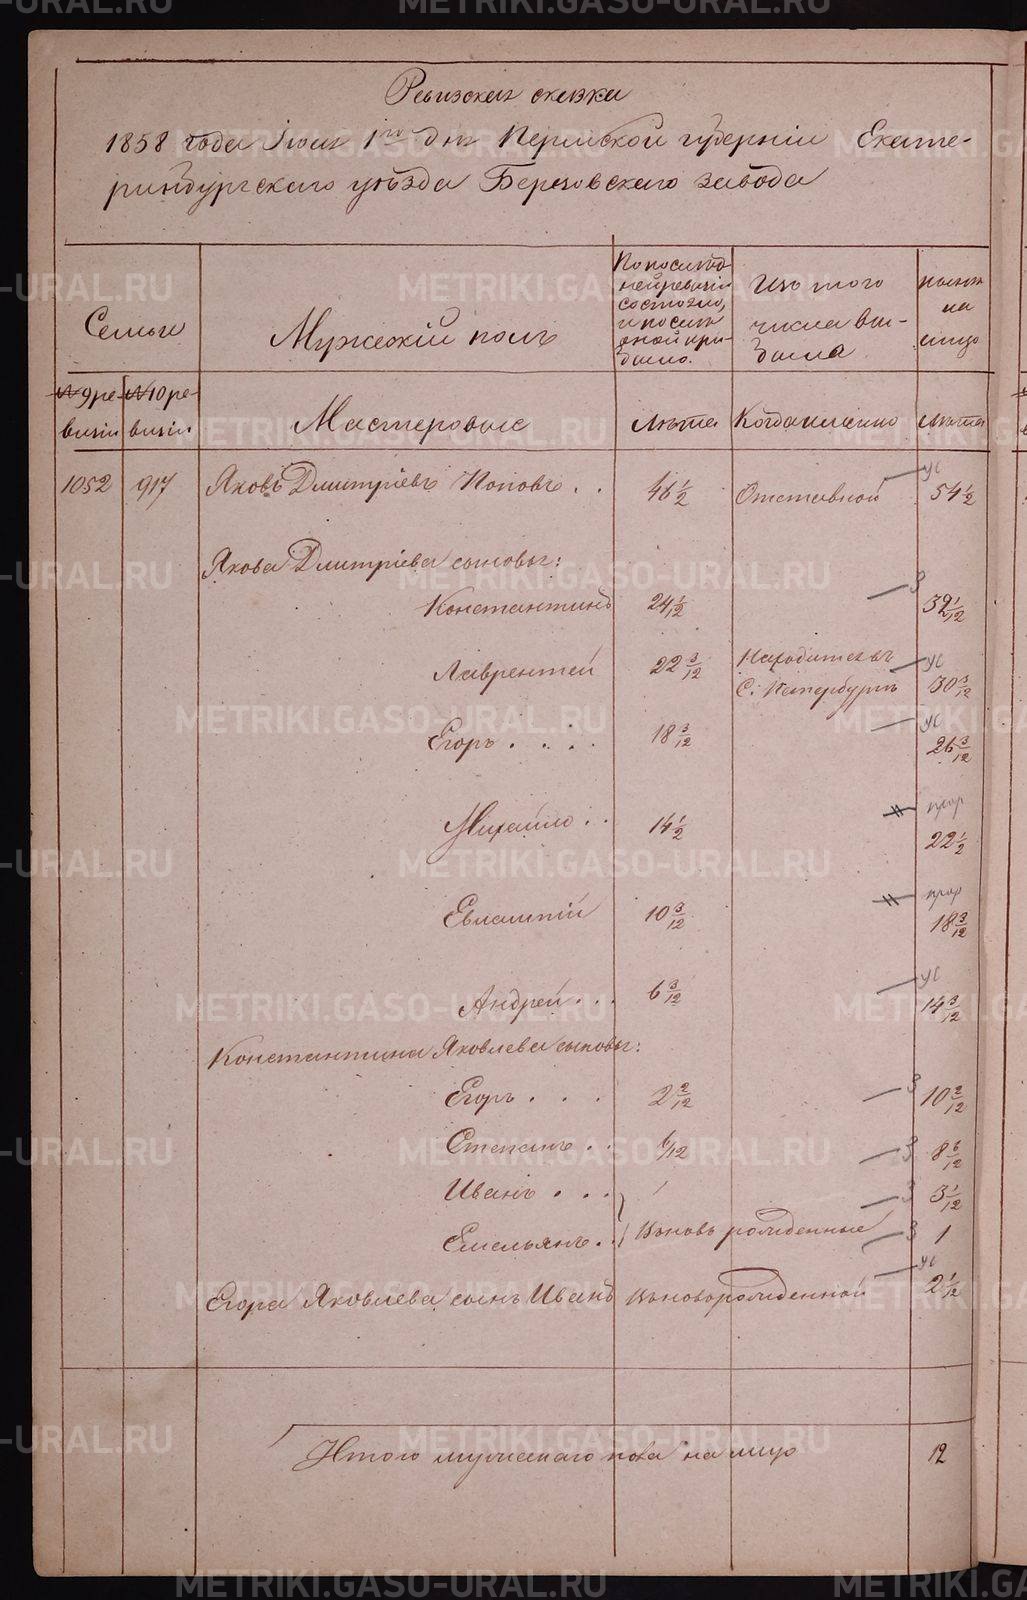 Ревизская сказка
1858 года Июня 1го дня Пермской губернiи Екате-
ринбургскаго уѣзда Березовскаго завода
Семьи
Мужескiй полъ
По послѣд-
ней ревизiи
состояло,
и послѣ
оной при-
было.
Изъ того
числа вы-
было
на
лицо
№ 9 ре-
визiи
№ 10 ре-
визiи
Мастеровые
Лѣта
Когда именно
Лѣта
1052 917 Яковъ Дмитрiевъ Поповъ . . 46 1/2 Отставной ус 54 1/2
Якова Дмитрiева сыновья:
Константинъ 24 1/2 З 32 1/12
Лаврентей 22 3/12 Находится въ
С. Петербургѣ ус 30 3/12
Егоръ . . . . 18 3/12 ус 26 3/12
Михайло . . 14 1/2 прор 22 1/2
Евлампiй 10 3/12 прор 18 3/12
Андрей . . . 6 3/12 ус 14 3/12
Константина Яковлева сыновья:
Егоръ . . . 2 2/12 З 10 2/12
Степанъ . . 6/12 З 8 6/12
Иванъ . . . З 3 1/12
Емельянъ . . Вновь рожденные З 1
Егора Яковлева сынъ Иванъ Вновьрожденной ус 2 1/12
Итого мужескаго пола на лицо 12
METRIKI.GASO-URAL.RU